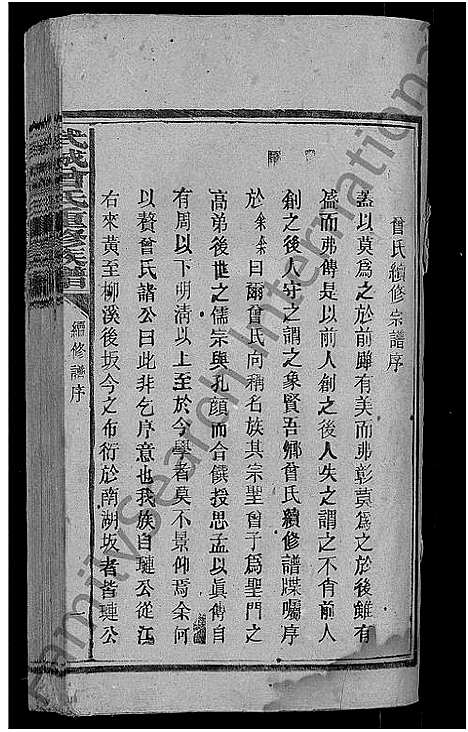 曾氏續修宗譜序
蓋以莫爲之於前雖有美而弗彰莫爲之於後雖有
益而弗傳是以前人創之後人失之謂之不肖前人
創之後人守之謂之象賢吾鄉曾氏續修譜牒囑序
於余余曰爾曾氏向稱名族其宗聖曾子爲聖門之
高弟後世之儒宗與孔顏而合饌授思孟以眞傳自
有周以下明清以上至於今學者莫不景仰焉余何
以贅曾氏諸公曰此非乞序意也我族自璉公從江
右來黃至柳溪後坂今之布衍於南湖坂者皆璉公
武城曾氏重修族譜
續修譜序
FamilySearch International